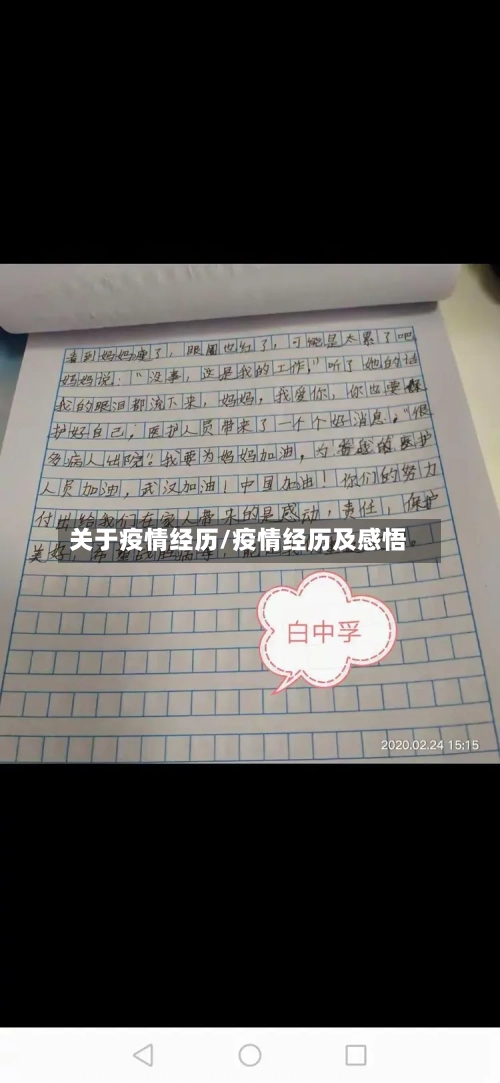 看到妈妈瘦了，眼圈也红了，可能是太累了吧，
妈妈说："没事，这是我的工作，"听了她的话
我的眼泪都流下来，妈妈，我爱你，你也要保
护好自己，医护人员带来了一个个好消息，"很
多病人出院"。我要为妈妈加油，为普通的医护
人员加油，武汉加油！中国加油！你们的努力
付出给我们在家人带来的是感动，责任，保护
美好，希望战胜病毒，
关于疫情经历/疫情经历及感悟
白中孚
2020.02.24 15:15